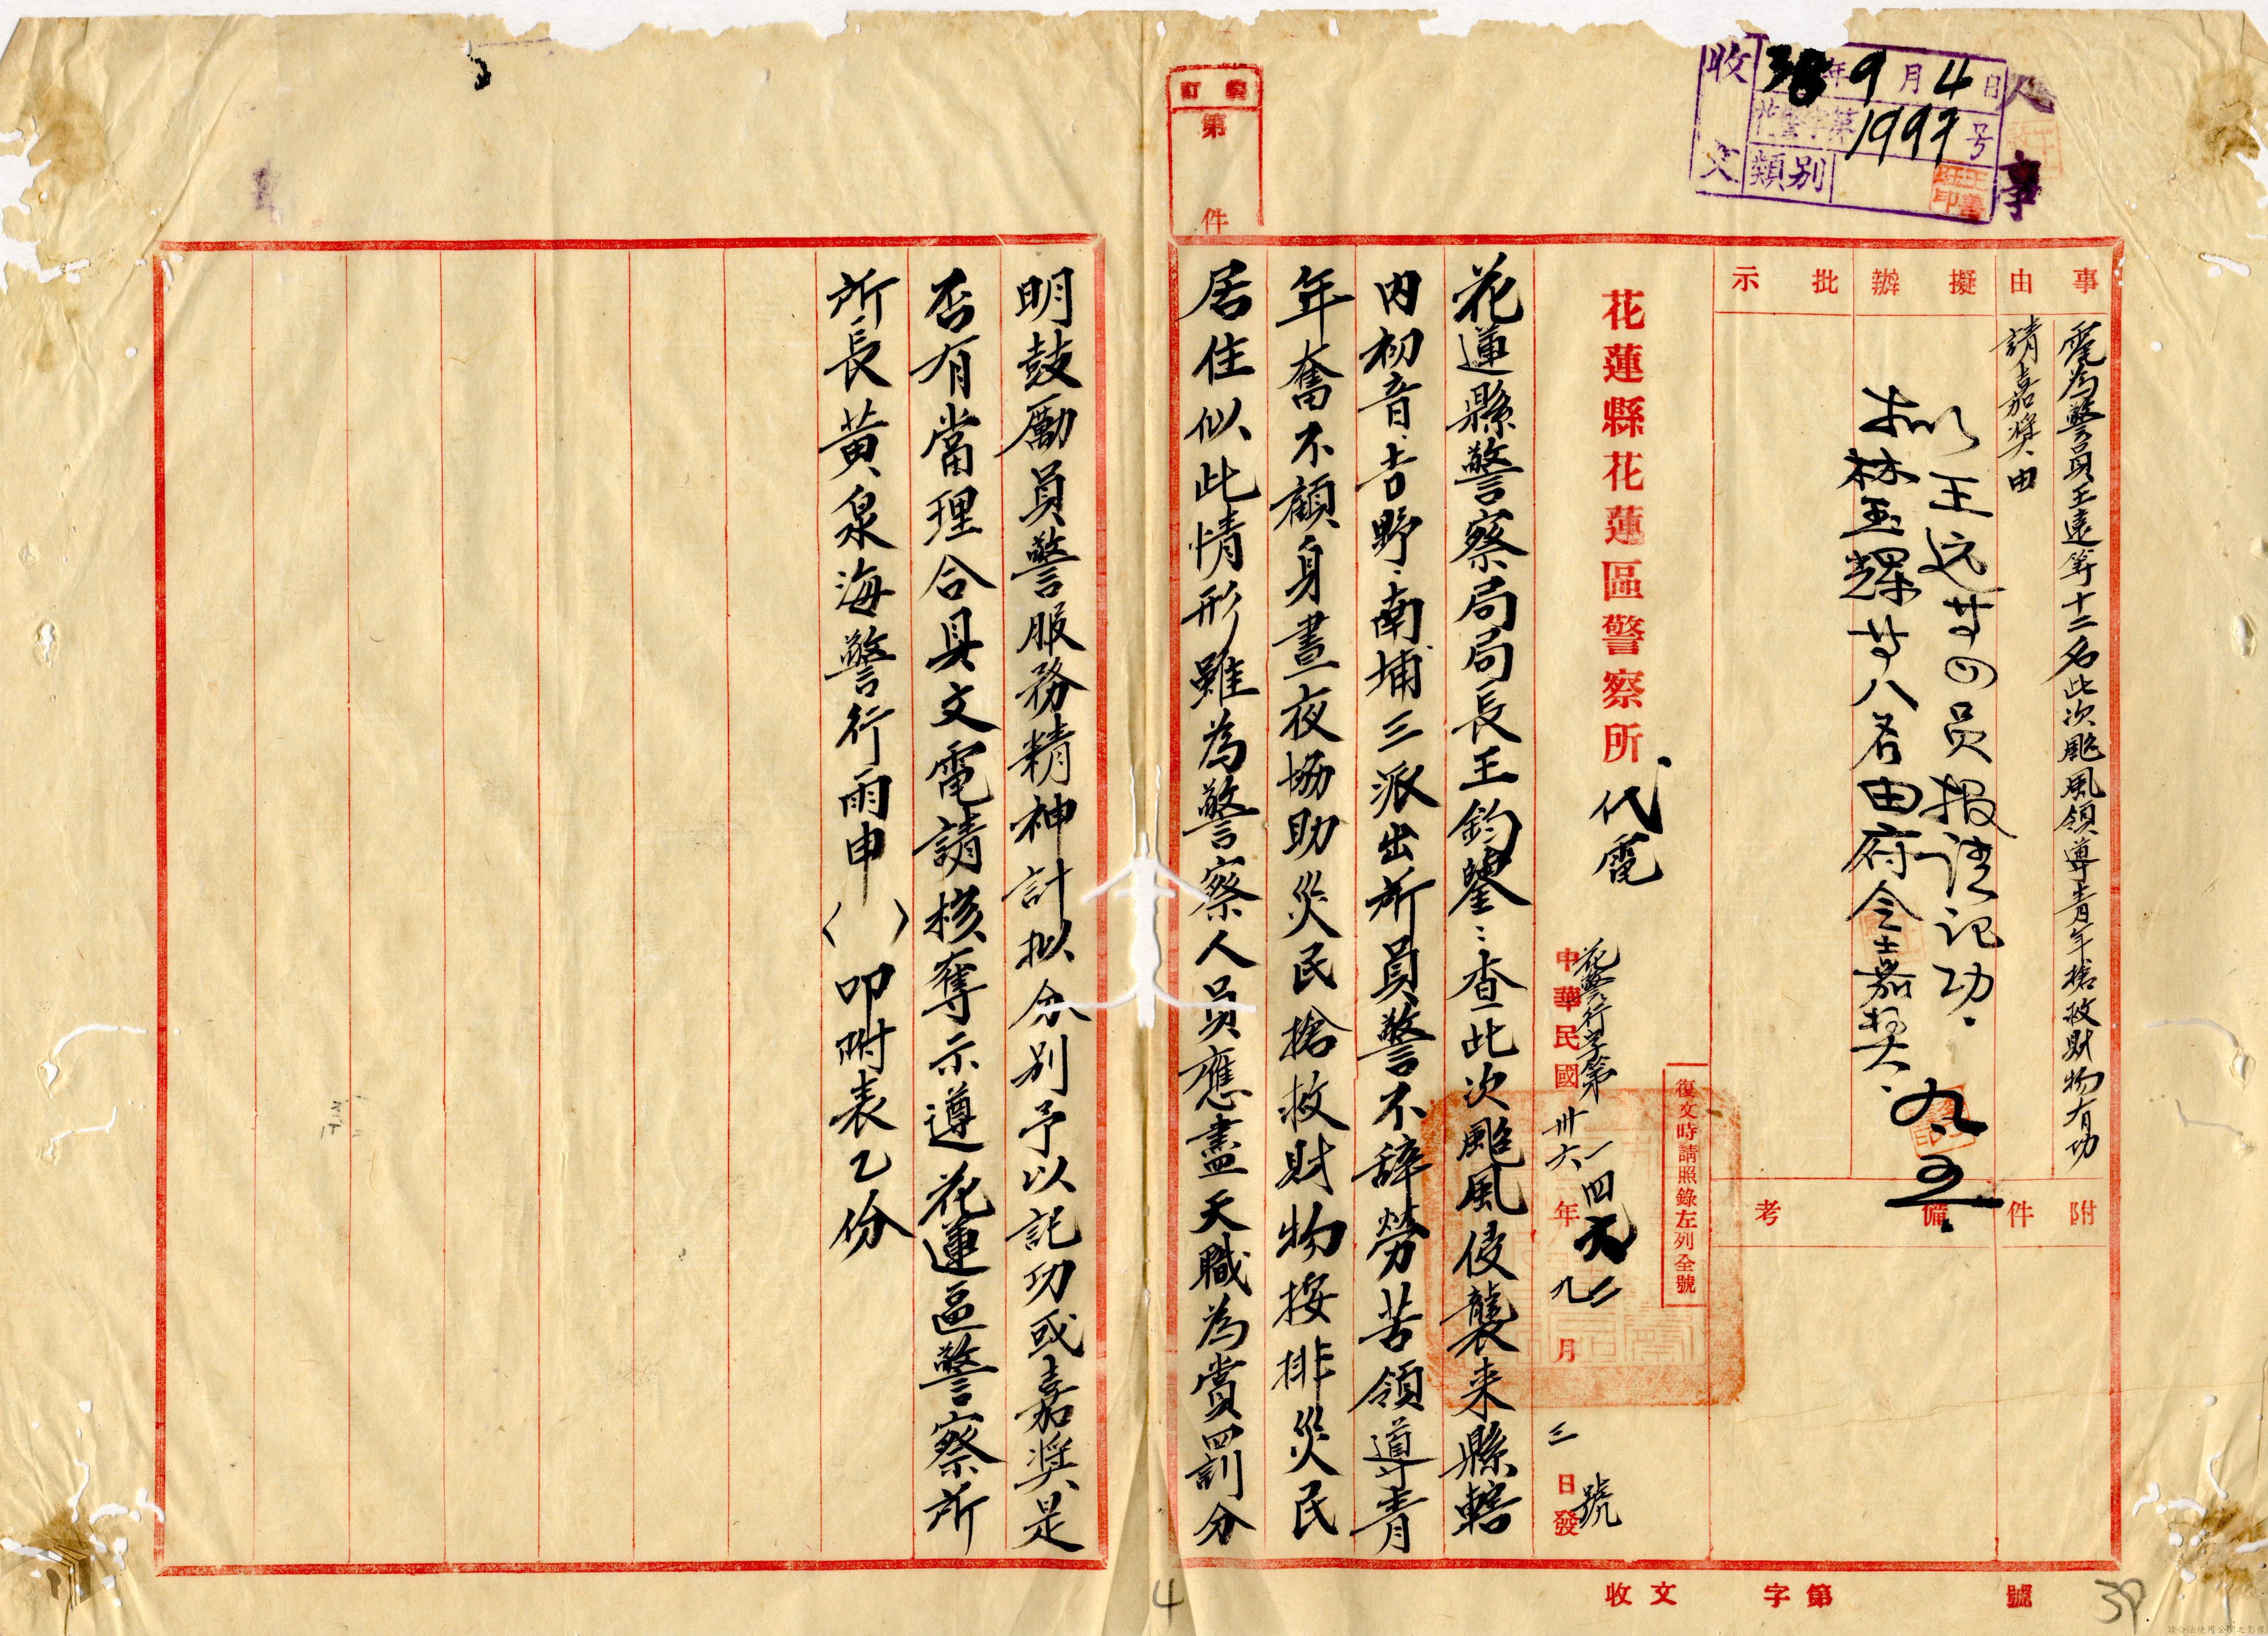 收文
38年9月4日
花警字第1997号
類別
人事
裝訂
第 件
事由
電為警員王遠等十二名此次颱風領導青年搶救財物有功
請嘉獎由
擬辦
拟王远等四员报請记功
林玉輝等八名由府令嘉奖
九.五
批示
附件
備考
復文時請照錄左列全號
花蓮縣花蓮區警察所代電
花警行字第一四元二號
中華民國卅六年九月三日發
花蓮縣警察局局長王鈞鑒：查此次颱風侵襲来縣轄
內初音、吉野、南埔三派出所員警不辞勞苦領導青
年奮不顧身晝夜協助災民搶救財物按排災民
居住似此情形雖為警察人員應盡天職為賞罰分
明鼓勵員警服務精神計拟分別予以記功或嘉奬是
否有當理合具文電請核奪示遵花蓮區警察所
所長黃泉海警行雨申（ ）叩附表乙份
收文 字第 號
4
39